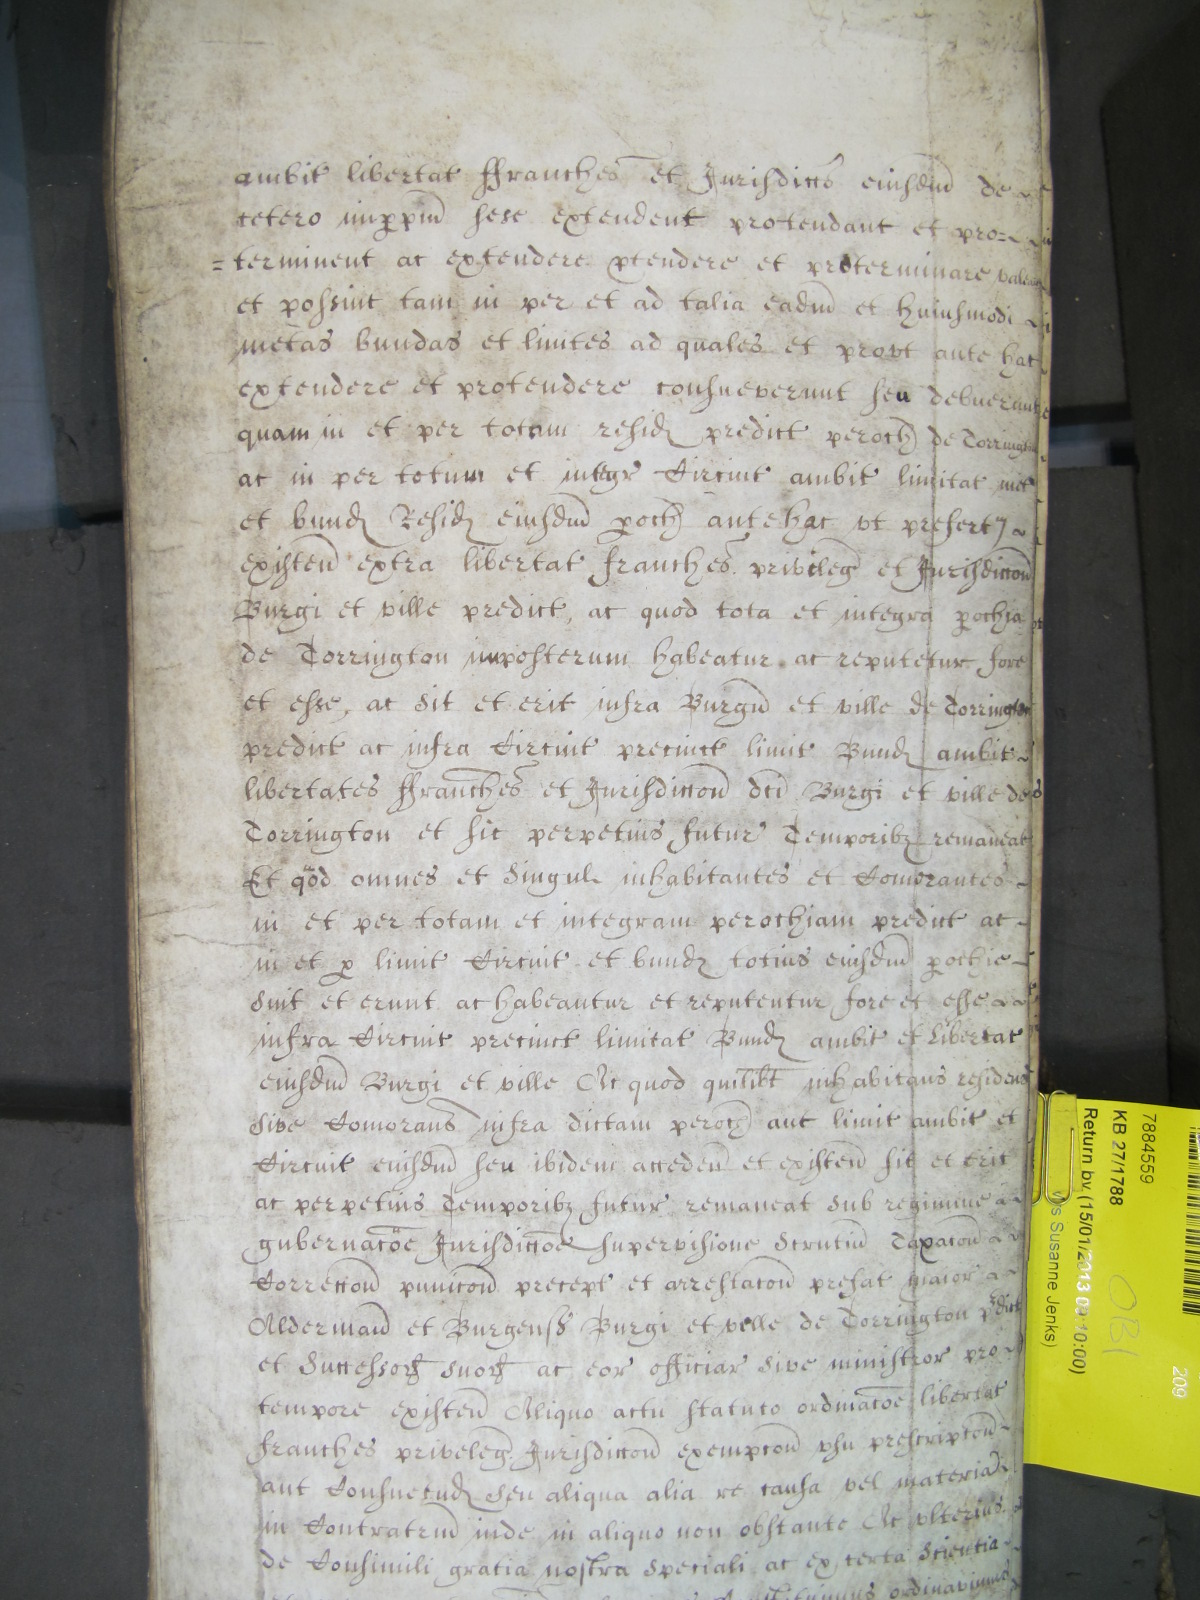 ambit libertat ffranches et Jurisdictō eiusdm de
cetero imppm sese extendent protendant et pro=
=terminent ac extendere ptendere et proterminare valeant
et possint tam in per et ad talia eadm et huiusmodi
metas bundas et limites ad quales et provt ante hac
extendere et protendere consueverunt seu debuerunt
quam in et per totam resid predict peroch de Torrington
ac in per totum et integr Circuit ambit limitat met
et bund Resid eiusdm poch antehac vt prefert
existen extra libertat franches privileg et Jurisdiccon
Burgi et ville predict, ac quod tota et integra pochia
de Torrington imposterum habeatur ac reputetur fore
et esse, ac sit et erit infra Burgu et ville de Torrington
predict ac infra Circuit precinct limit Bund ambit
libertates ffranches et Jurisdiccon dci Burgi et ville de
Torrington et sic perpetuis futur Temporibz remaneat
Et qod omnes et Singul inhabitantes et Comorantes
in et per totam et integram perochiam predict ac
in et p limit Circuit et bund totius eiusdm pochie
sint et erunt ac habeantur et reputentur fore et esse
infra Circuit precinct limitat Bund ambit et Libertat
eiusdm Burgi et ville Ac quod quilibt inhabitans residens
sive Comorans infra dictam peroch aut limit ambit et
Circuit eiusdm seu ibidem acceden et existen sit et erit
ac perpetuis Temporibz futur remaneat sub regimine
gubernacoe Jurisdiccoe supervisione Scrutin Taxacon
Correccon punicon precept et arrestacon prefat maior
Alderman et Burgenss Burgi et ville de Torrington pdict
et Successor suor ac eor officiar sive ministror pro
tempore existen Aliquo actu statuto ordinacoe libertat
franches priveleg Jurisdiccon exempcon usu prescripcon
aut Consuetud seu aliqua alia re causa vel materia
in Contrarm inde in aliquo non obstante Ac vlterius
de Consimili gratia nostra speciali ac ex certa Scientia
ordinavimus
7884559
KB 27/1788
Return by (15/01/2013 09:10:00)
Susanne Jenks)
OB1
209